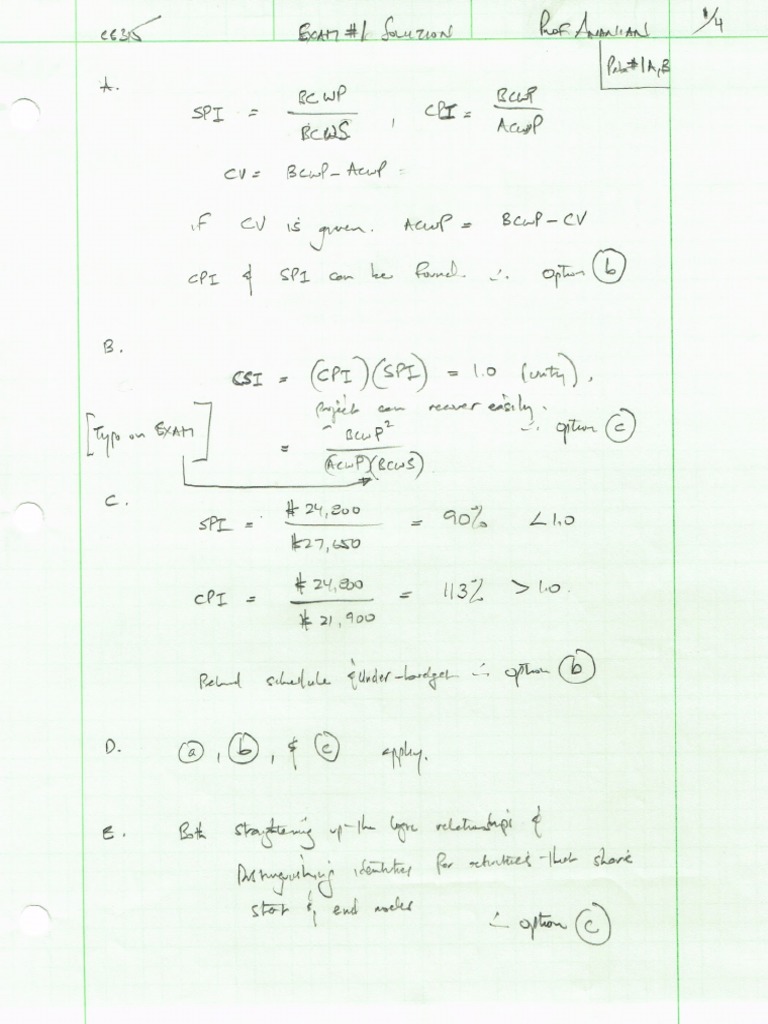 CE35 EXAM #1 SOLUTION Prof. ANANIAN 1/4
Prob #1 A, B
A.
SPI = BCWP / BCWS , CPI = BCWP / ACWP
CV = BCWP - ACWP =
if CV is given. ACWP = BCWP - CV
CPI & SPI can be found. ∴ option (b)
B.
CSI = (CPI)(SPI) = 1.0 (unity),
project can recover easily.
∴ option (c)
[Typo on EXAM]
= BCWP² / (ACWP)(BCWS)
C.
SPI = $24,800 / $27,650 = 90% < 1.0
CPI = $24,800 / $21,900 = 113% > 1.0.
Behind schedule & under-budget ∴ option (b)
D. (a), (b), & (c) apply.
E. Both straightening up the logic relationships &
Distinguishing identities for activities that share
start & end nodes
∴ option (c)